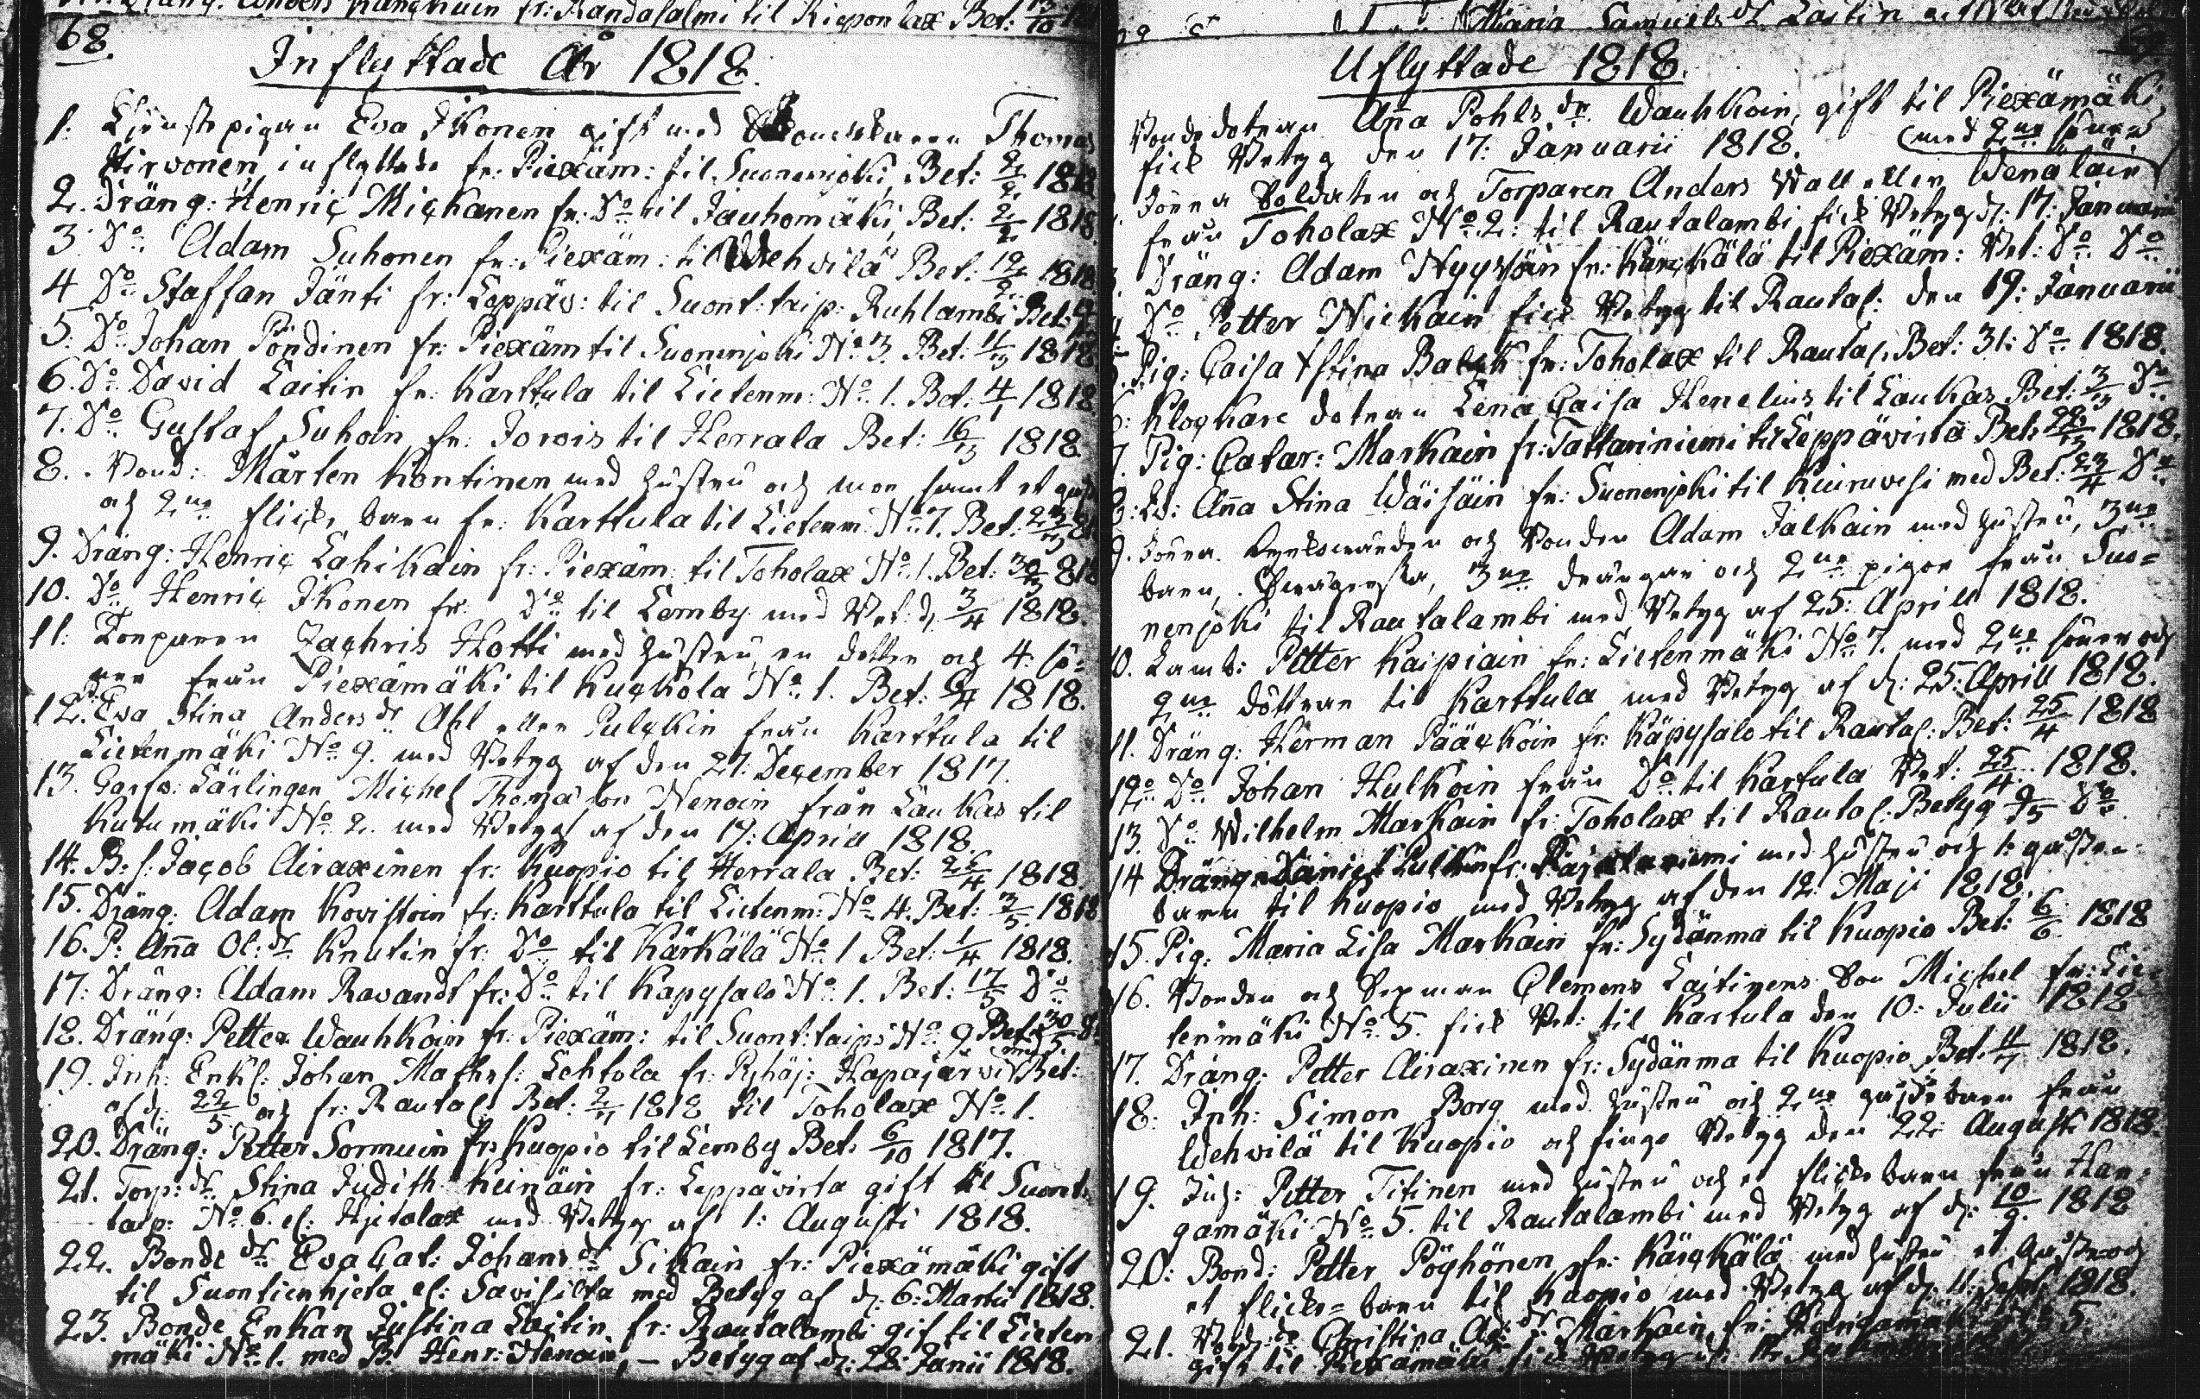 Anders fr: Randasalmi til Bet:
68.
Inflyttade År 1818.
1: Tjenstepigan Eva Ikonen gift med Thomas
Hirvonen, inflyttade fr: Piexäm: til Suonenjoki, Bet: 1818
2. Dräng: Henric Michanen fr: Do til Jauhomäki, Bet: 2/2 1818.
3. Do Adam Suhonen fr: Piexäm: til Wehvilä Bet: 1818.
4 Do Staffan Jänti fr: Leppäv: til Suont:taip: Ruhlambi Bet:
5. Do Johan Pöndinen fr: Piexäm til Suonenjoki No 3. Bet: 1818
6. Do David Laitin fr: Karttula til Lietenm: No 1. Bet: 1818.
7. Do Gustaf Suhoin fr: Jorois til Herrala Bet: 16/3 1818
8. Bond: Mårten Kontinen med hustru och mor samt et
och 2ne flicke barn fr: Karttula til Lietenm: No 7. Bet:
9. Dräng: Henric Lahikain fr: Piexäm: til Toholax No 1. Bet: 30/3 818
10. Do Henric Ikonen fr: Do til Lemby med Bet: d: 3/4 1818.
11: Torparen Zachris Hotti med hustru, en dotter och 4: sö=
ner från Piexämäki til Kuckola No 1. Bet: 1818.
12. Eva Stina Anders dr Ahl eller Pulckin från Karttula til
Lietenmäki No 9. med Betyg af den 27. December 1817.
13. Garfv: Lärlingen Michel Thomasson Nenoin från Laukas til
Kutumäki No 2. med Betyg af den 19: Aprill 1818.
14. B:s: Jacob Airaxinen fr: Kuopio til Herrala Bet: 26/4 1818
15. Dräng: Adam Kovistoin fr: Karttula til Lietenm: No 4: Bet: 3/5 1818
16. P: Anna Ol: dr Knutin fr: Do til Kärkälä No 1 Bet: 1/4 1818.
17: Dräng: Adam Ravandt fr: Do til Käpysalo No 1. Bet: 17/5 Do
18. Dräng: Petter Wauhkoin fr: Piexäm: til Suont:taip: No 9 Bet: 30/5 Do
19. Inh: Enkl: Johan Mathss: Lehtola fr: Hapajärvi med Bet:
af d: 22/5 och fr: Rautal: Bet: 1818 til Toholax No 1.
20. Dräng: Petter Sormuin fr: Kuopio til Lemby Bet: 6/10 1817.
21. Torp: dr Stina Judith Keinäin fr: Leppävirta gift til Suont:
taip: No 6. el: Hjetolax med Betyg af 1: Augusti 1818.
22. Bonde dr Eva Cat: Johans dr Sikain fr: Piexämäki gift
til Suontienhjeta el: Savisilta med Betyg af d: 6: Martii 1818.
23. Bonde Enkan Justina Laitin fr: Rautalambi gif til Lieten
mäki No 1. med B: Henr: Henoin, – Betyg af d: 28: Junii 1818.
Maria Samuels dr Laitin
Uflyttade 1818.
Bondedotran Anna Pohls dr Wauhkoin, gift til Piexämäki,
fick Betyg den 17: Januarii 1818. (med 2ne söner
Förra Soldaten och Torparen Anders Wall eller Wenäläin
från Toholax No 2: til Rautalambi fick Betyg d: 17: Januarii
Dräng: Adam Nyyssöin fr: Kärckälä til Piexäm: Bet: Do Do
Do Petter Nickain fick Betyg til Rautal: den 19: Januarii
Pig: Caisa Stina Balck fr: Toholax til Rautal: Bet: 31: Do 1818.
6: Klockare dotran Lena Caisa Henelius til Laukas Bet: 3/3 Do
7. Pig: Catar: Markain fr: Tattariniemi til Leppävirta Bet: 22/3 1818.
8: Anna Stina Wäisäin fr: Suonenjoki til Kiuruvesi med Bet: 23/4 Do
9. Förra och Bonden Adam Jalkain med hustru, 3ne
barn, Svägerska, 3ne drängar och 2ne pigor från Suo=
nenjoki til Rautalambi med Betyg af 25: Aprill 1818.
10. Lamb: Petter Kaipiain fr: Lietenmäki No 7. med 2ne söner och
2ne döttrar til Karttula med Betyg af d: 25: Aprill 1818.
11. Dräng: Herman Pääcköin fr: Käpysalo til Rautal: Bet: 25/4 1818
12. Do Johan Hulkoin från Do til Kartula Bet: 25/4 1818.
13. Do Wilhelm Markain fr: Toholax til Rautal: Betyg Do
14 Dräng: Daniel fr: med hustru och 1: gosse=
barn til Kuopio med Betyg af den 12: Maji 1818.
15. Pig: Maria Lisa Markain fr: Sydänma til Kuopio Bet: 6/6 1818
16. Bonden och Sexman Clemens Laitinens Son Michel fr: Lie=
tenmäki No 5. fick Bet: til Kartula den 10: Julii 1818
17. Dräng: Petter Airaxinen fr: Sydänma til Kuopio Bet: 1818.
18: Inh: Simon Borg med hustru och 2ne gossebarn från
Wehvilä til Kuopio och fingo Betyg den 22: Augusti 1818.
19. Inh: Petter Titinen med hustru och et flickebarn från Han=
gamäki No 5. til Rautalambi med Betyg af d: 10/9 1818
20: Bond: Petter Pöyhönen fr: Kärckälä med hustru et gosse och
et flicke=barn til Kuopio med Betyg af d: 11: Sept: 1818.
21. Christina Markain fr: Hangamäki No 5.
gift til Piexämäki fick Betyg